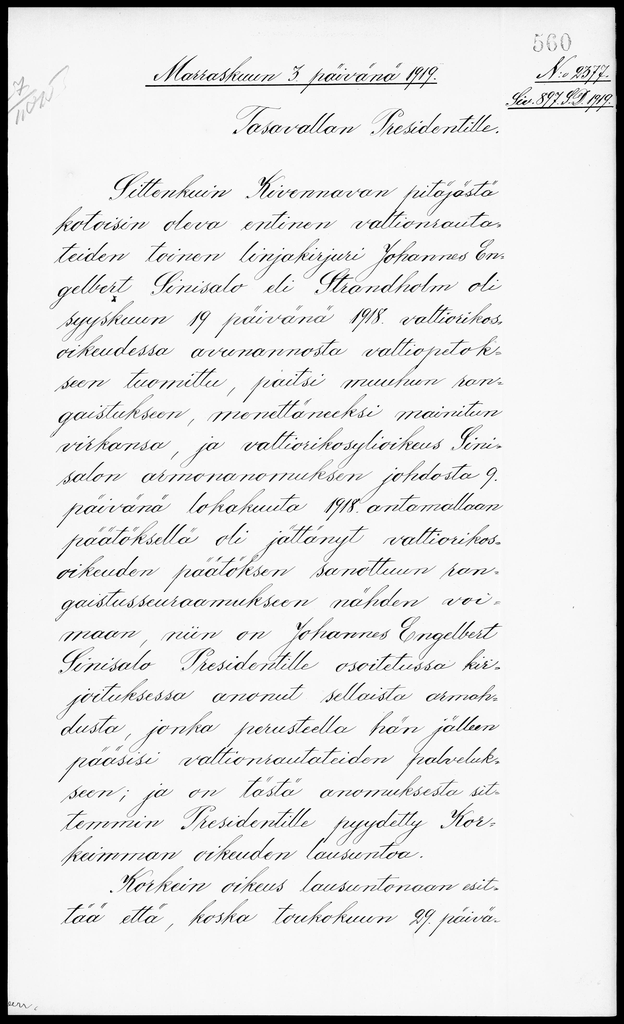 560
Marraskuun 3. päivänä 1919.
N:o 2377.
Siv. 897. S.D. 1919.
7
Tasavallan Presidentille.
Sittenkuin Kivennavan pitäjästä
kotoisin oleva entinen valtionrauta-
teiden toinen linjakirjuri Johannes En-
gelbert Sinisalo eli Strandholm oli
syyskuun 19 päivänä 1918. valtiorikos-
oikeudessa avunannosta valtiopetok-
seen tuomittu, paitsi muuhun ran-
gaistukseen, menettäneeksi mainitun
virkansa, ja valtiorikosylioikeus Sini-
salon armonanomuksen johdosta 9.
päivänä lokakuuta 1918. antamallaan
päätöksellä oli jättänyt valtiorikos-
oikeuden päätöksen sanottuun ran-
gaistusseuraamukseen nähden voi-
maan, niin on Johannes Engelbert
Sinisalo Presidentille osoitetussa kir-
joituksessa anonut sellaista armah-
dusta, jonka perusteella hän jälleen
pääsisi valtionrautateiden palveluk-
seen; ja on tästä anomuksesta sit-
temmin Presidentille pyydetty Kor-
keimman oikeuden lausuntoa.
Korkein oikeus lausuntonaan esit-
tää että, koska toukokuun 29. päivä-